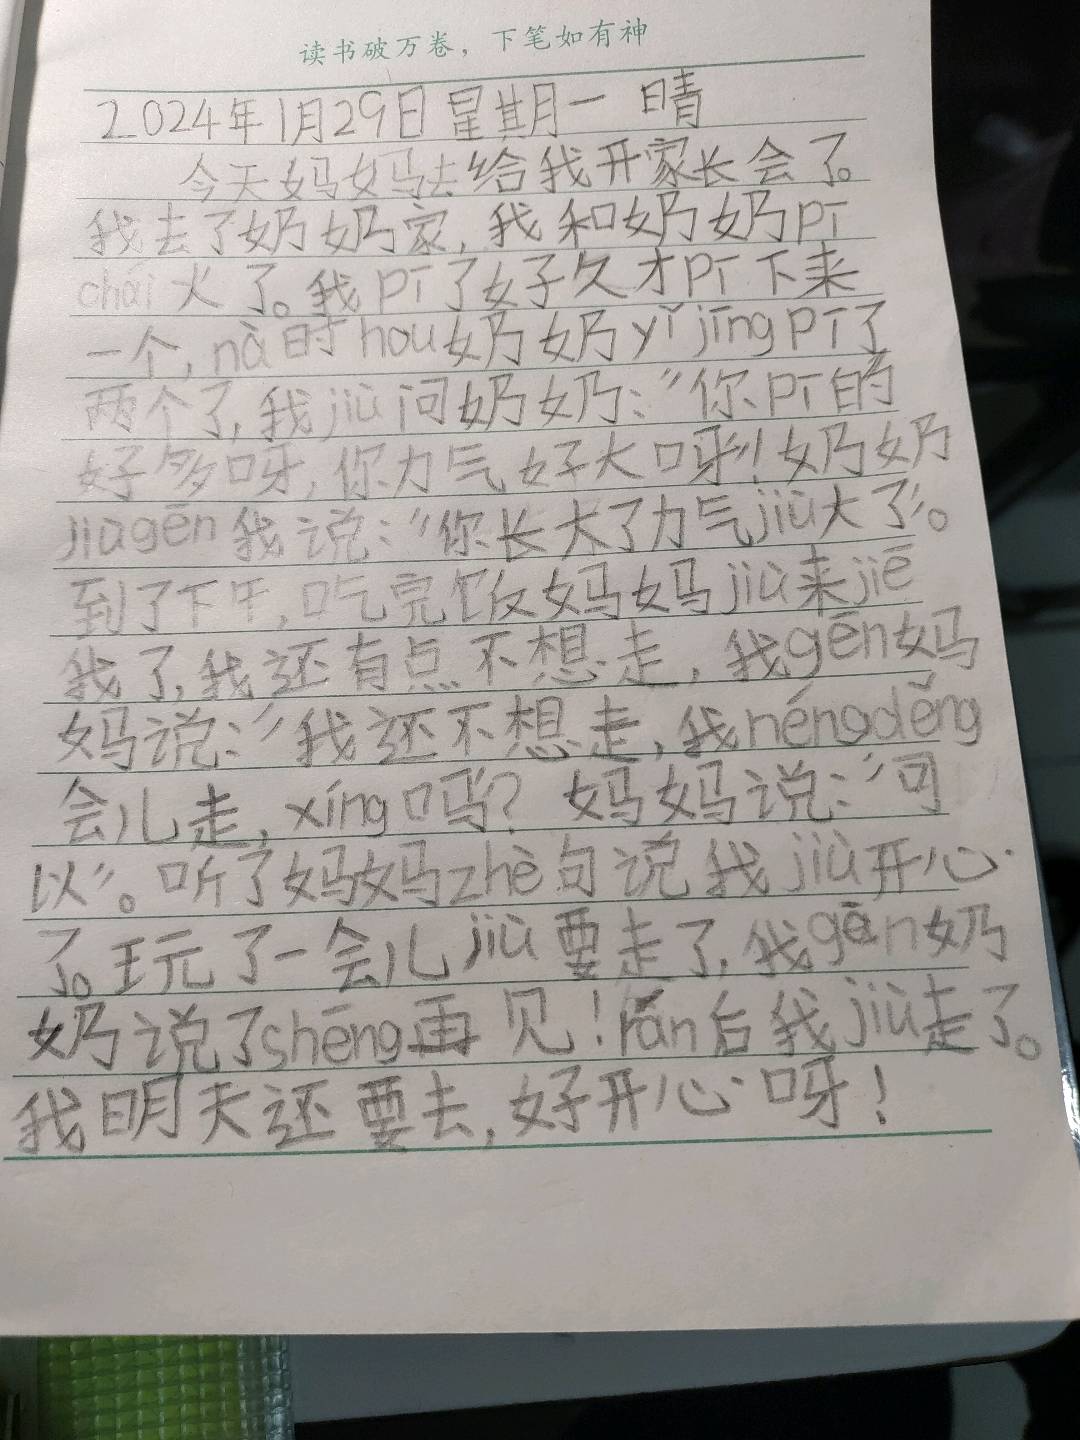 读书破万卷，下笔如有神
2024年1月29日星期一 晴
今天妈妈去给我开家长会了。
我去了奶奶家，我和奶奶pī
chái火了。我pī了好久才pī下来
一个，nà时hou奶奶yǐjīngpī了
两个了，我jiù问奶奶：“你pī的
好多呀，你力气好大呀”！奶奶
jiùgēn我说：“你长大了力气jiù大了”。
到了下午，吃完饭妈妈jiù来jiē
我了，我还有点不想走，我gēn妈
妈说：“我还不想走，我néngděng
会儿走，xíng吗”？妈妈说：“可
以”。听了妈妈zhè句说我jiù开心
了。玩了一会儿jiù要走了，我gēn奶
奶说了shēng再见！rán后我jiù走了。
我明天还要去，好开心呀！